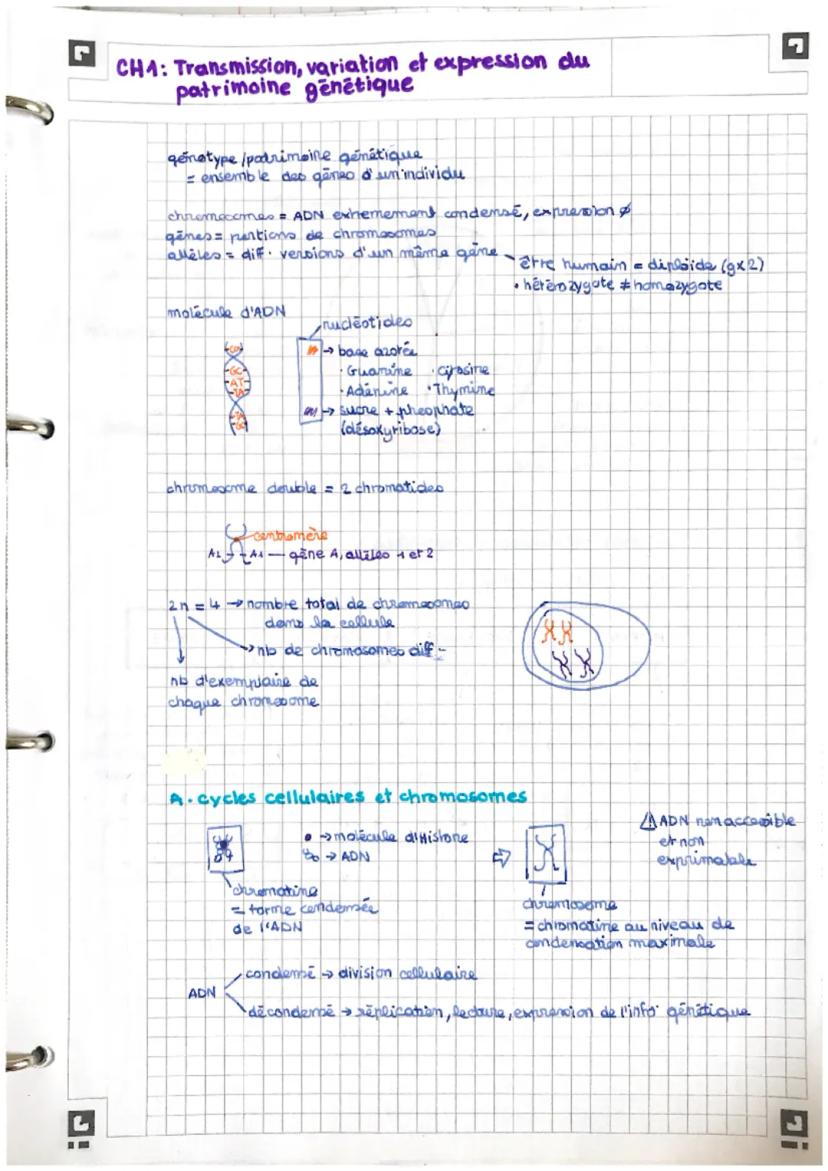 CH1: Transmission, variation et expression du
patrimoine génétique
génotype/patrimoine génétique
= ensemble des gènes d'un individu
chromosomes = ADN extrêmement condensé, expression ∅
gènes = portions de chromosomes
allèles = diff. versions d'un même gène
être humain = diploïde (gx2)
• hétérozygote ≠ homozygote
molécule d'ADN
nucléotides
→ base azotée
• Guanine • Cytosine
• Adénine • Thymine
→ sucre + phosphate
(désoxyribose)
GC
AT
TA
TA
chromosome double = 2 chromatides
centromère
A2 A1 — gène A, allèles 1 et 2
2n = 4 → nombre total de chromosomes
dans la cellule
→ nb de chromosomes diff.
nb d'exemplaire de
chaque chromosome
A. cycles cellulaires et chromosomes
→ molécule d'Histone
→ ADN
⚠ ADN non accessible
et non
exprimable
chromatine
= forme condensée
de l'ADN
chromosome
= chromatine au niveau de
condensation maximale
condensé → division cellulaire
ADN
décondensé → réplication, lecture, expression de l'info génétique